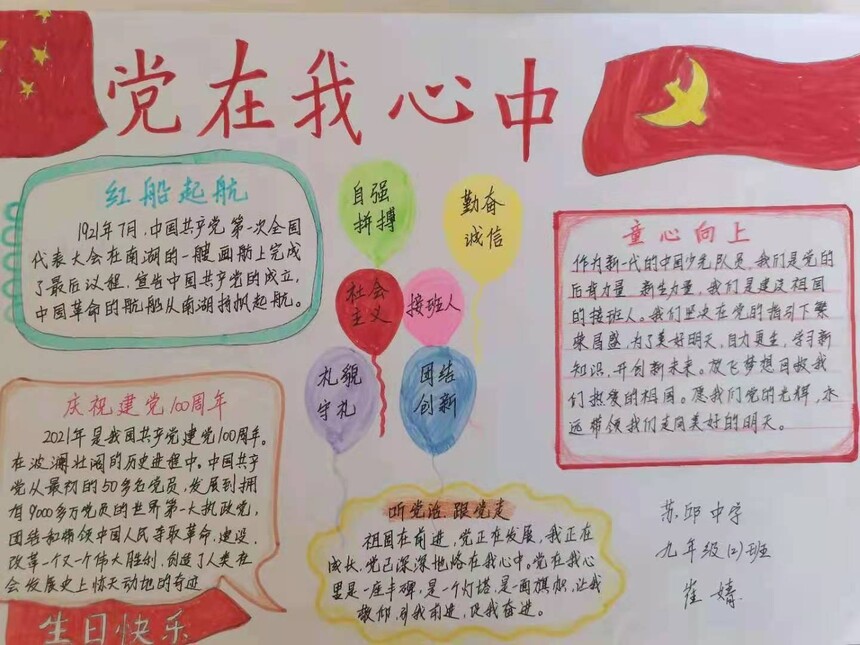 党在我心中
红船起航
1921年7月,中国共产党第一次全国
代表大会在南湖的一艘画舫上完成
了最后议程,宣告中国共产党的成立,
中国革命的航船从南湖扬帆起航。
自强
拼搏
勤奋
诚信
社会
主义
接班人
礼貌
守礼
团结
创新
童心向上
作为新一代的中国少先队员,我们是党的
后备力量 新生力量,我们是建设祖国
的接班人。我们坚决在党的指引下繁
荣昌盛,为了美好明天,自力更生,学习新
知识,开创新未来。放飞梦想回报我
们热爱的祖国。愿我们党的光辉,永
远带领我们走向美好的明天。
庆祝建党100周年
2021年是我国共产党建党100周年。
在波澜壮阔的历史进程中,中国共产
党从最初的50多名党员,发展到拥
有9000多万党员的世界第一大执政党,
团结和带领中国人民夺取革命、建设、
改革一个又一个伟大胜利,创造了人类社
会发展史上惊天动地的奇迹
生日快乐
听党话 跟党走
祖国在前进,党正在发展,我正在
成长,党已深深地烙在我心中。党在我心
里是一座丰碑,是一个灯塔,是一面旗帜,让我
敬仰,引我前进,促我奋进。
苏邱中学
九年级(2)班
崔婧